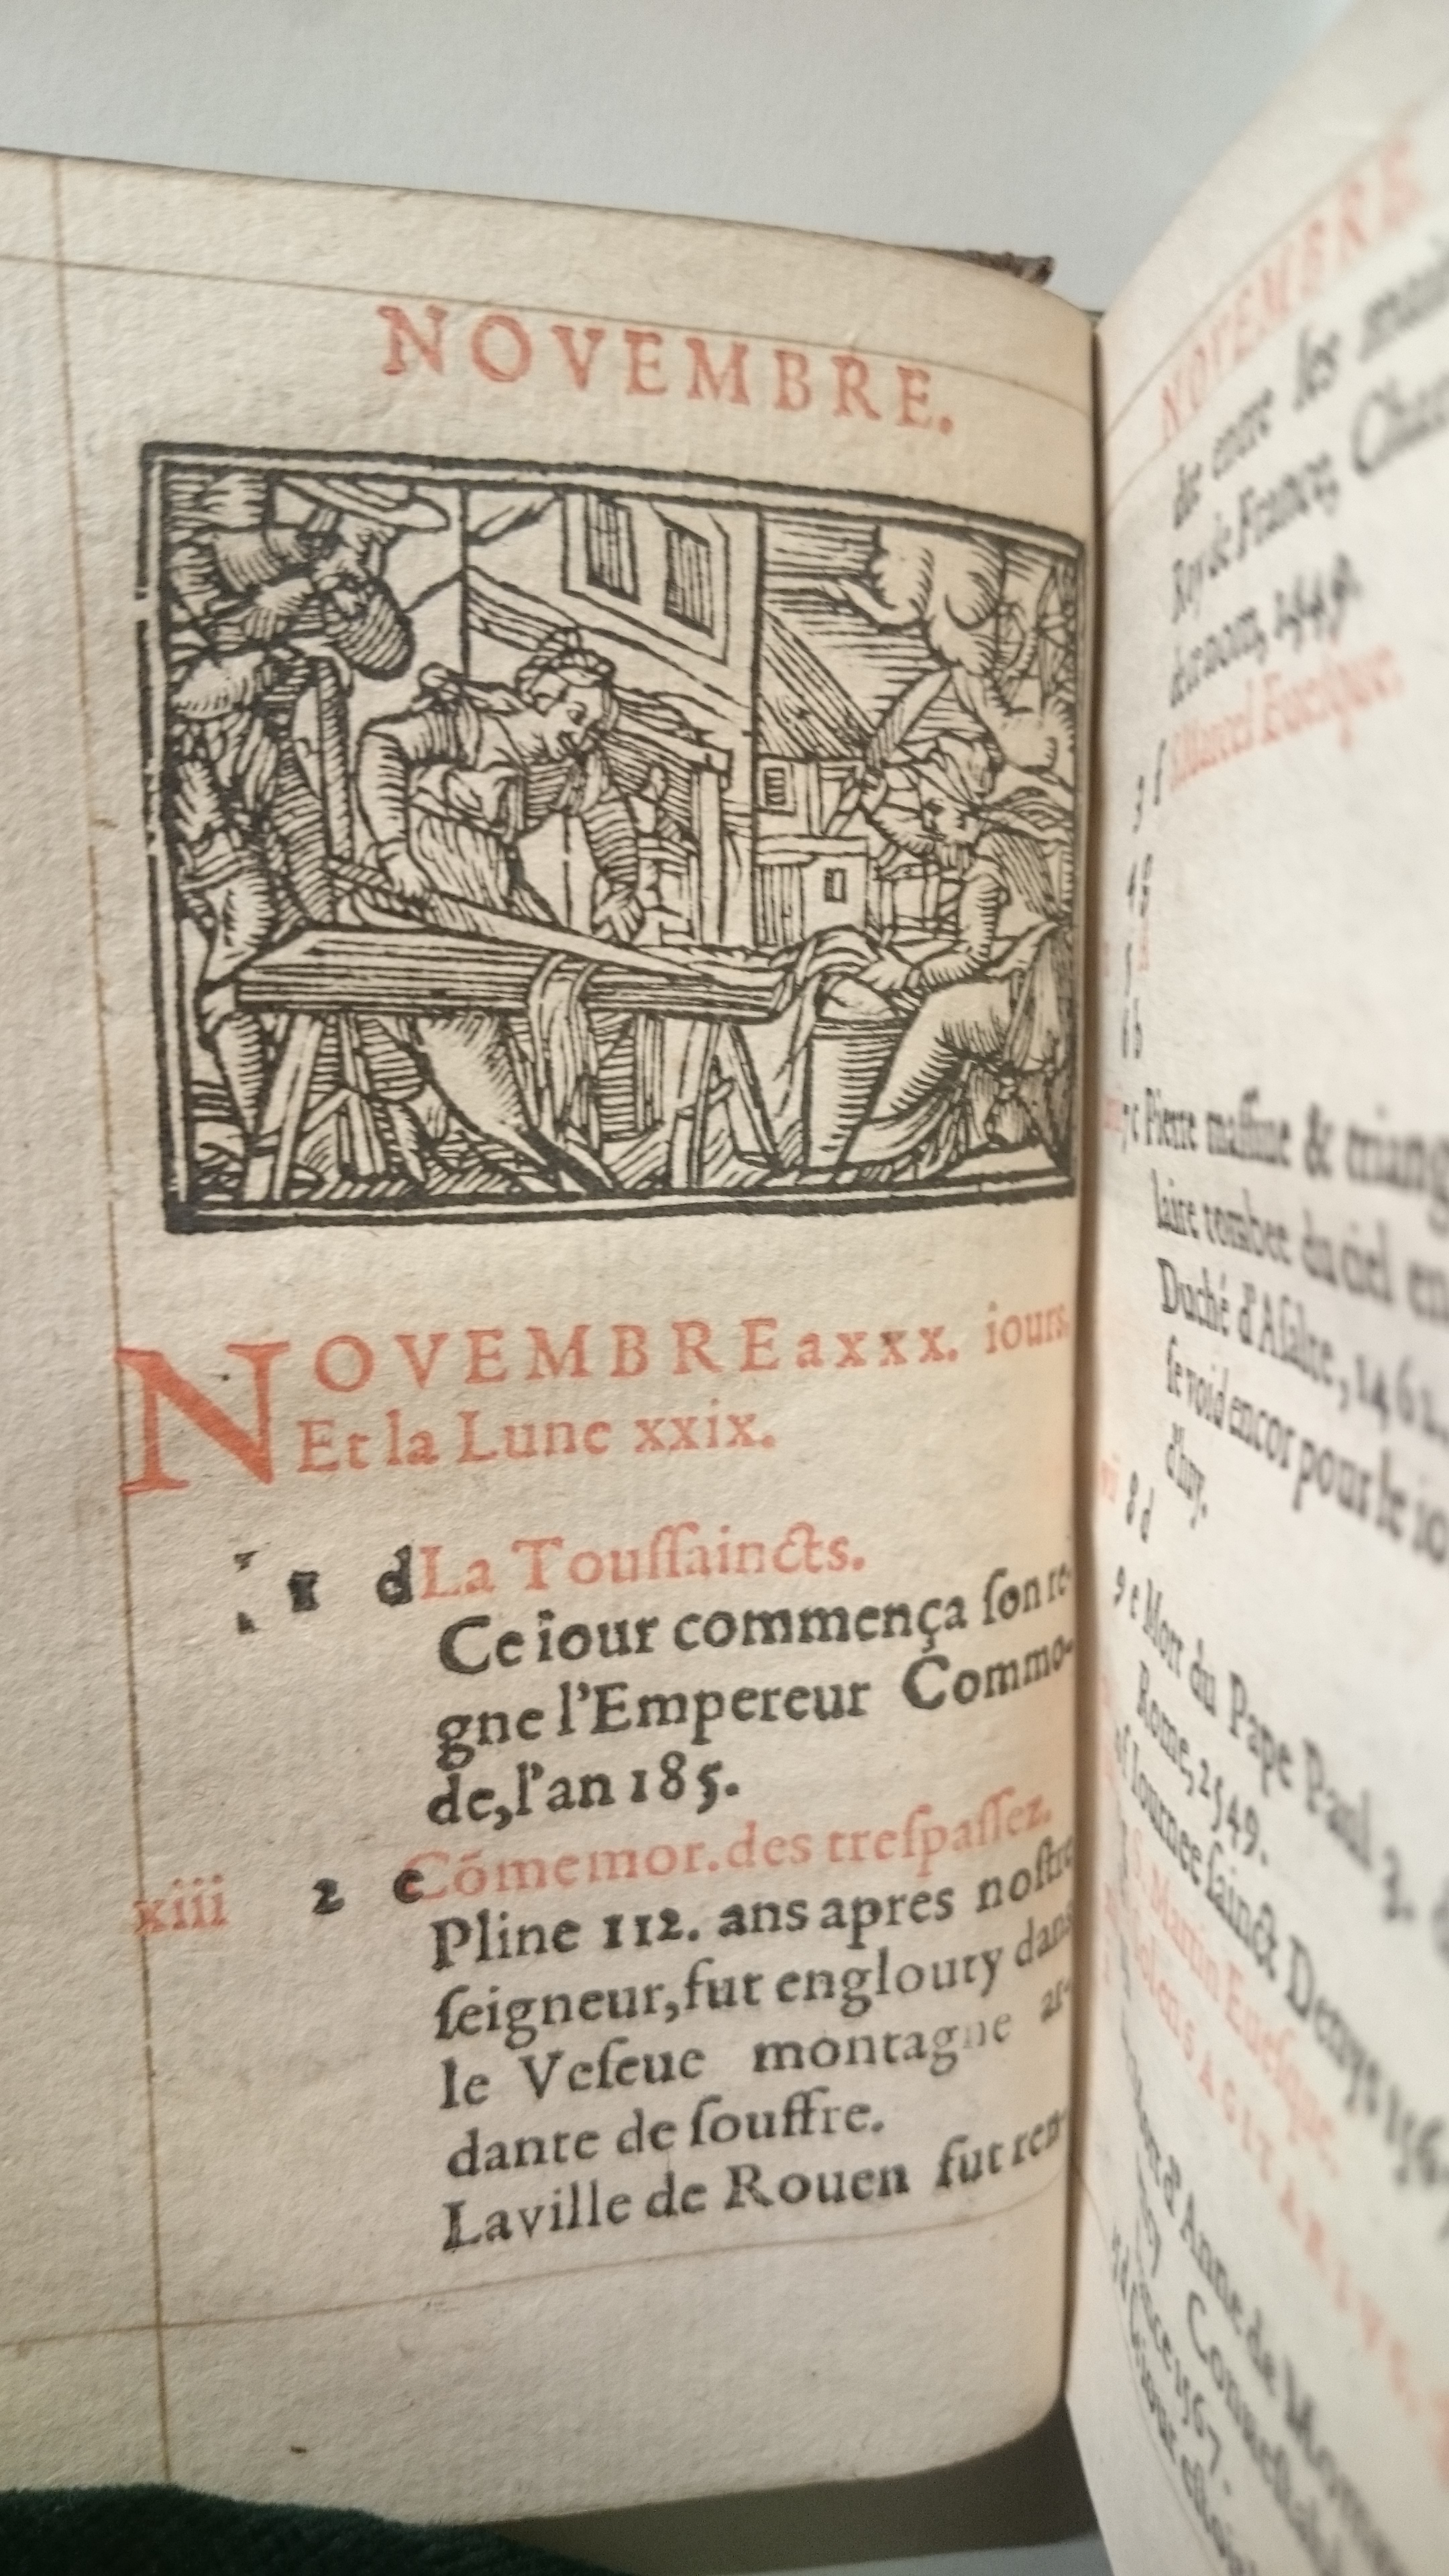 NOVEMBRE.
NOVEMBRE a xxx. iours.
Et la Lune xxix.
1 d La Touſſaincts.
Ce iour commença ſon re-
gne l'Empereur Commo-
de, l'an 185.
xiii 2 e Cōmemor. des treſpaſſez.
Pline 112. ans apres noſtre
ſeigneur, fut englouty dans
le Veſeue montagne ar-
dante de ſouffre.
La ville de Rouen fut ren-
NOVEMBRE
due entre les
Roy de France, Char
de ce nom, 1449.
S. Marcel Eueſque.
3 f
4 g
5 A
6 b
7 c Pierre maſſiue & triang
laire tombee du ciel en
Duché d'Aſalte, 1462.
ſe void encor pour le io
d'huy.
8 d
9 e Mort du Pape Paul 3.
Rome, 1549.
Iournee ſainct Denys
S. Martin Eueſque.
Sol en SAGITARIVS
d'Anne de
1567.